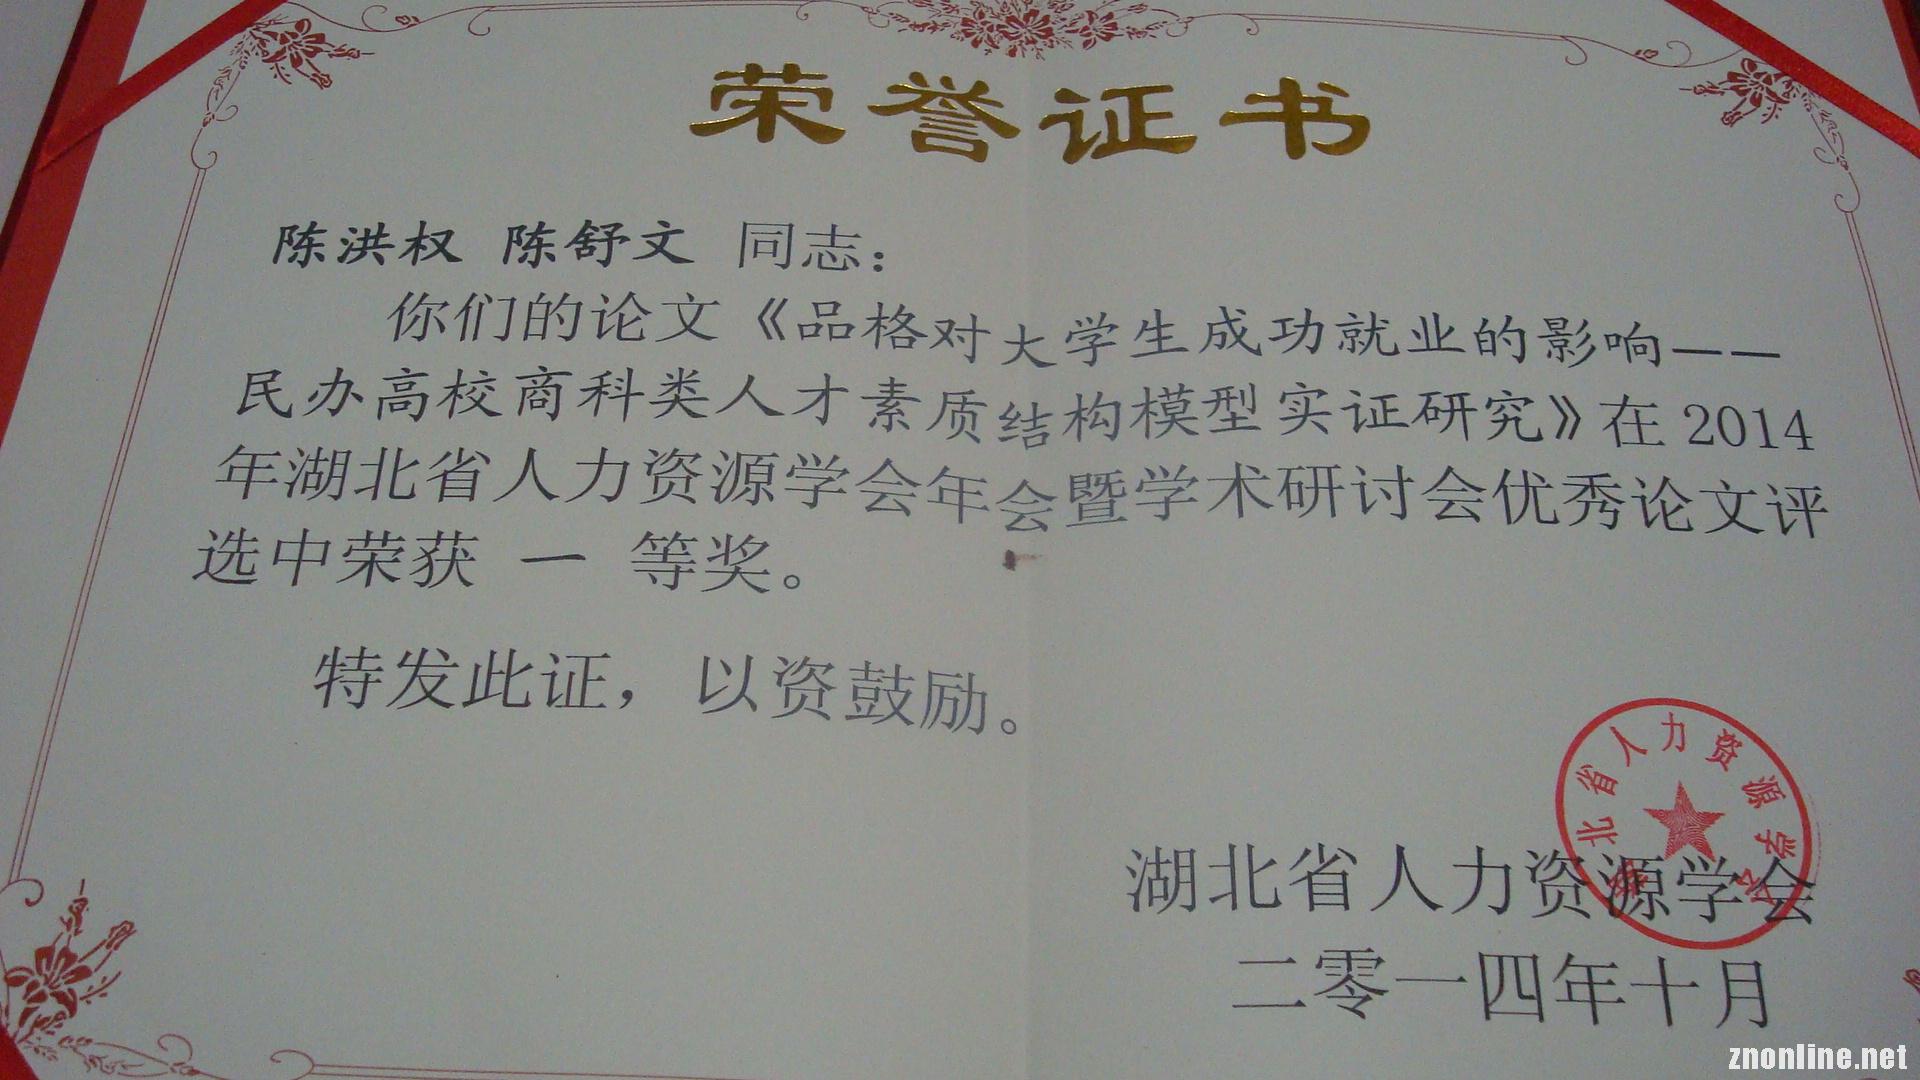 荣誉证书
陈洪权 陈舒文 同志：
你们的论文《品格对大学生成功就业的影响——
民办高校商科类人才素质结构模型实证研究》在 2014
年湖北省人力资源学会年会暨学术研讨会优秀论文评
选中荣获 一 等奖。
特发此证，以资鼓励。
北省人力资源学会
湖北省人力资源学会
二零一四年十月
znonline.net